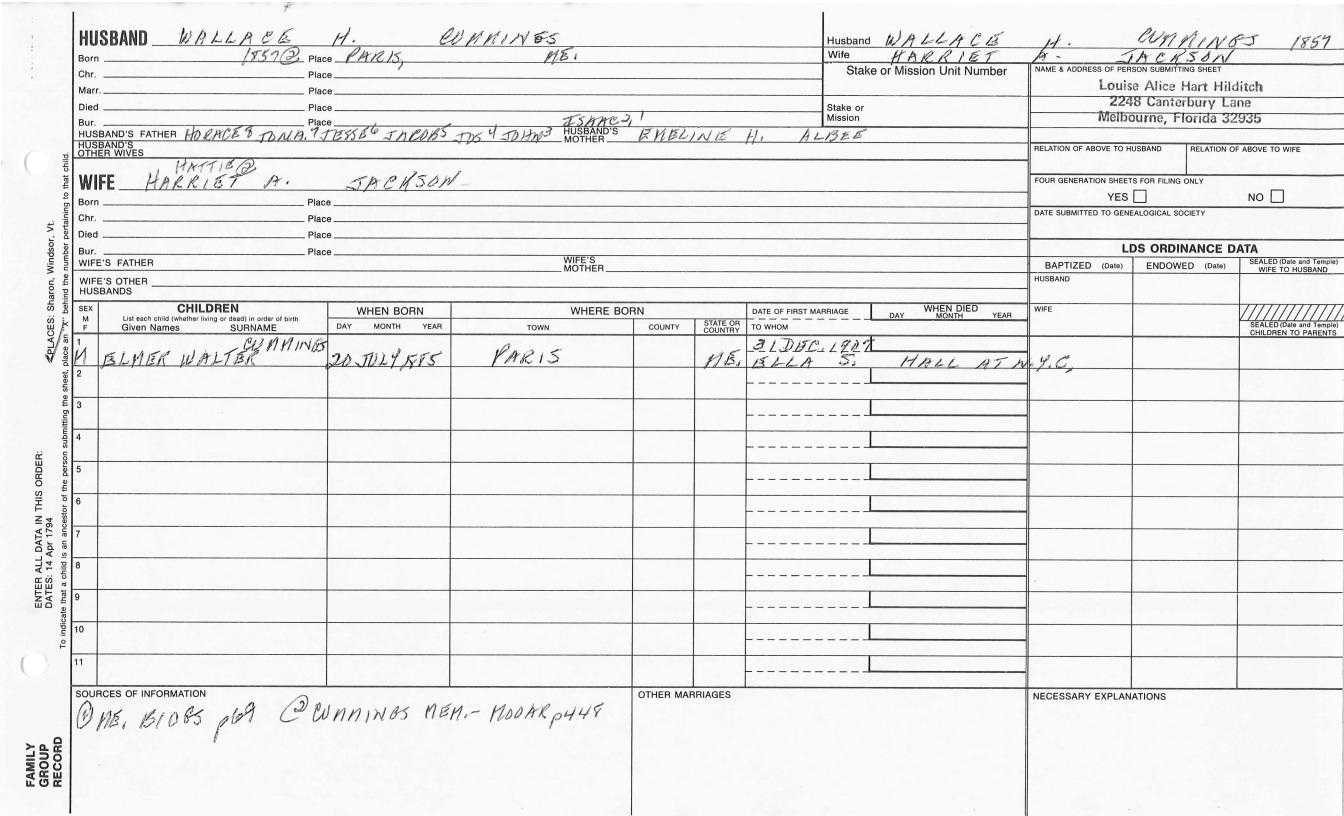 HUSBAND WALLACE H. CUMMINGS
Born 1857② Place PARIS, ME.
Chr. Place
Marr. Place
Died Place
Bur. Place
ISAAC2,1
HUSBAND'S FATHER HORACE8 JONA.7 JESSE6 JACOB5 JOS4 JOHN3 HUSBAND'S MOTHER EMELINE H. ALBEE
HUSBAND'S OTHER WIVES
Husband WALLACE H. CUMMINGS 1857
Wife HARRIET A. JACKSON
Stake or Mission Unit Number
Stake or Mission
NAME & ADDRESS OF PERSON SUBMITTING SHEET
Louise Alice Hart Hilditch
2248 Canterbury Lane
Melbourne, Florida 32935
RELATION OF ABOVE TO HUSBAND RELATION OF ABOVE TO WIFE
FOUR GENERATION SHEETS FOR FILING ONLY
YES NO
DATE SUBMITTED TO GENEALOGICAL SOCIETY
HATTIE②
WIFE HARRIET A. JACKSON
Born Place
Chr. Place
Died Place
Bur. Place
WIFE'S FATHER WIFE'S MOTHER
WIFE'S OTHER HUSBANDS
LDS ORDINANCE DATA
BAPTIZED (Date) ENDOWED (Date) SEALED (Date and Temple) WIFE TO HUSBAND
HUSBAND
WIFE
SEALED (Date and Temple) CHILDREN TO PARENTS
SEX M F
CHILDREN
List each child (whether living or dead) in order of birth
Given Names SURNAME
WHEN BORN
DAY MONTH YEAR
WHERE BORN
TOWN COUNTY STATE OR COUNTRY
DATE OF FIRST MARRIAGE
TO WHOM
WHEN DIED
DAY MONTH YEAR
1 CUMMINGS 31 DEC. 1907
M ELMER WALTER 20 JULY 1885 PARIS ME. ELLA S. HALL AT N.Y.C.
2
3
4
5
6
7
8
9
10
11
SOURCES OF INFORMATION
① ME. BIOGS p69 ② CUMMINGS MEM.- MOOAR p448
OTHER MARRIAGES
NECESSARY EXPLANATIONS
PLACES: Sharon, Windsor, Vt.
ENTER ALL DATA IN THIS ORDER:
DATES: 14 Apr 1794
To indicate that a child is an ancestor of the person submitting the sheet, place an "X" behind the number pertaining to that child.
FAMILY
GROUP
RECORD